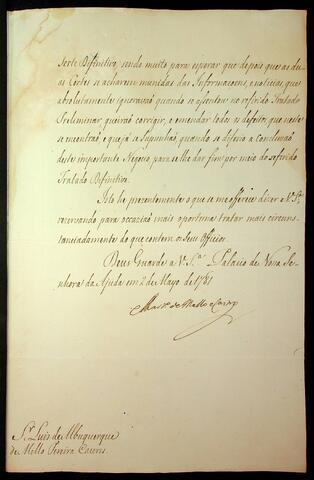 Sorte Difinitivo, sendo muito para esperar que depois que as du-
as Cortes se acharem munidas das Informaçoens, e noticias, que
absolutamente ignoravaõ quando se assentou no referido Tratado
Preliminar, queiraõ corrigir, e emendar todos os defeitos que neste
se encontraõ, e que já se supunhaõ, quando se diferio a Concluzaõ
deste importante Negocio, para se lhe dar fim por meio do referido
Tratado Difinitivo.
Isto he prezentemente o que se me offerece dizer a V. S.ª
rezervando para occaziaõ mais oportuna tratar mais circuns-
tanciadamente do que contem os seus Officios.
Deus Guarde a V. S.ª Palacio de Nossa Se-
nhora da Ajuda em 2 de Mayo de 1781
Mart.º de Mello e Castro
S.r Luis de Albuquerque
de Mello Pereira Caceres.